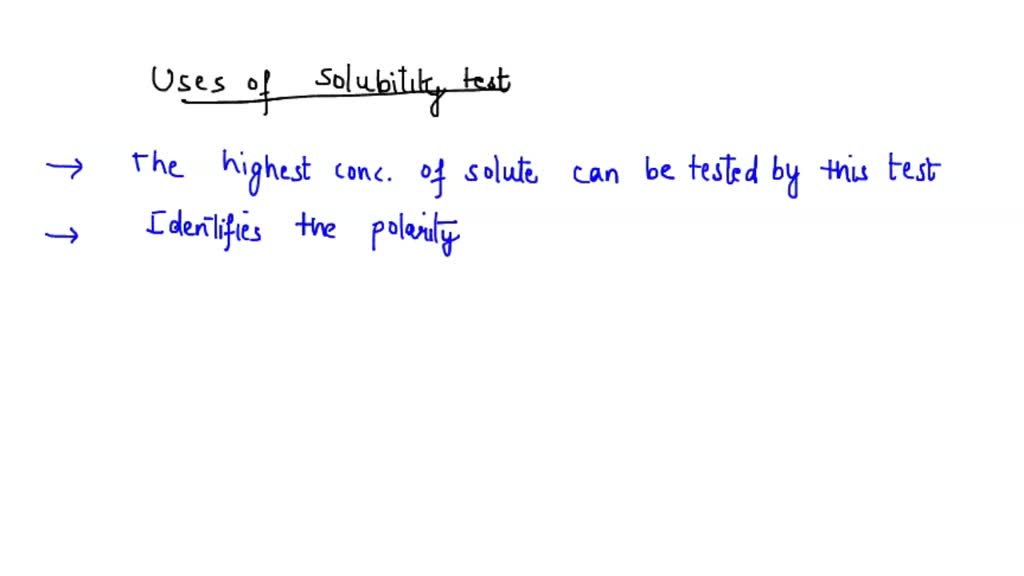 Uses of solubility test
→ The highest conc. of solute can be tested by this test
→ Identifies the polarity